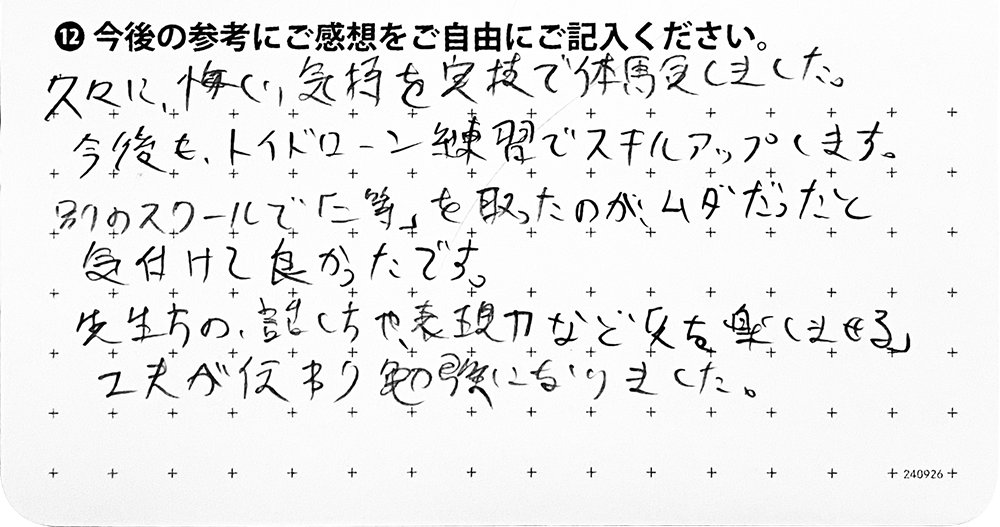 ⓬ 今後の参考にご感想をご自由にご記入ください。
久々に、悔しい気持を実技で体馬食しました。
今後も、トイドローン練習でスキルアップします。
別のスクールで「二等」を取ったのが、ムダだったと
気付けて良かったです。
先生方の、話し方や、表現力など「人を楽しませる」
工夫が伝わり勉強になりました。
240926